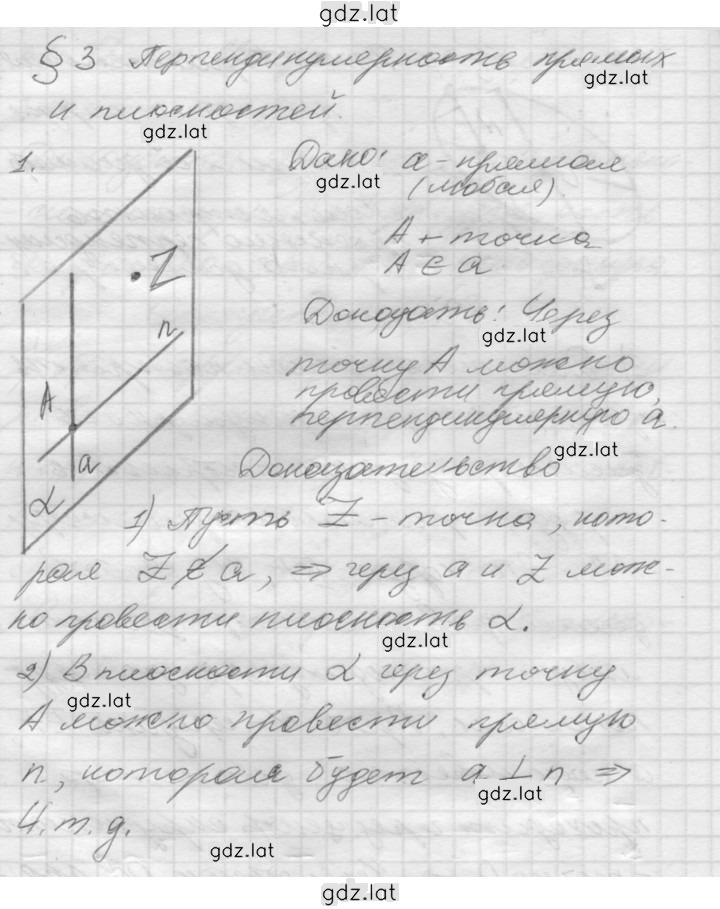 gdz.lat
§ 3 Перпендикулярность прямых
gdz.lat
и плоскостей.
gdz.lat
1.
Дано: a - прямая
gdz.lat
(любая)
A - точка
A ∈ a
Z
n
A
a
α
Доказать: Через
gdz.lat
точку A можно
провести прямую,
перпендикулярную a.
gdz.lat
Доказательство
1) Пусть Z - точка, кото-
рая Z ∉ a, ⇒ через a и Z мож-
но провести плоскость α.
gdz.lat
2) В плоскости α через точку
gdz.lat
A можно провести прямую
n, которая будет a ⊥ n ⇒
gdz.lat
Ч.т.д.
gdz.lat
gdz.lat